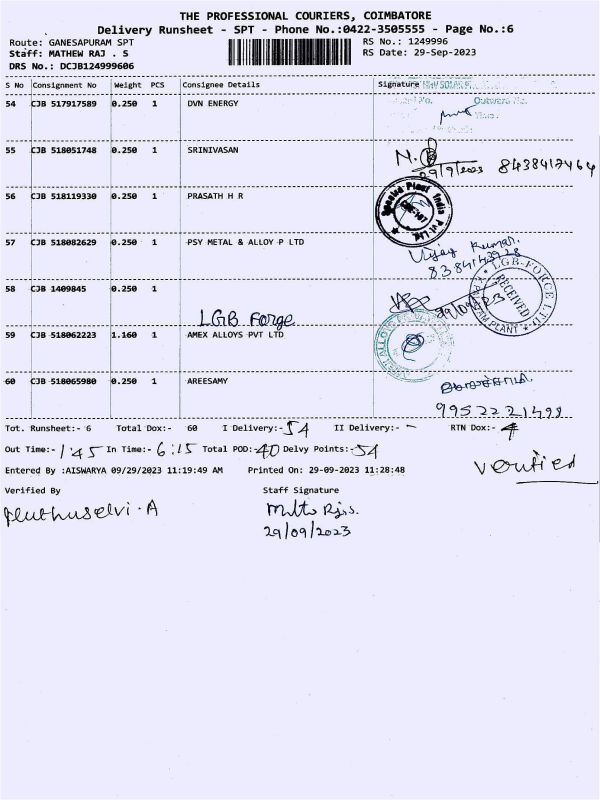 THE PROFESSIONAL COURIERS, COIMBATORE
Delivery Runsheet - SPT - Phone No.:0422-3505555 - Page No.:6
Route: GANESAPURAM SPT RS No.: 1249996
Staff: MATHEW RAJ . S RS Date: 29-Sep-2023
DRS No.: DCJB124999606
S No Consignment No Weight PCS Consignee Details Signature
54 CJB 517917589 0.250 1 DVN ENERGY
55 CJB 518051748 0.250 1 SRINIVASAN
29/9/2023 8438417464
56 CJB 518119330 0.250 1 PRASATH H R
57 CJB 518082629 0.250 1 PSY METAL & ALLOY P LTD
Vijay Kumar.
8384143928
58 CJB 1409845 0.250 1
LGB Forge
29/09/23
LGB-FORGE LTD
RECEIVED
PLANT
59 CJB 518062223 1.160 1 AMEX ALLOYS PVT LTD
60 CJB 518065980 0.250 1 AREESAMY
9952221499
Tot. Runsheet:- 6 Total Dox:- 60 I Delivery:- 54 II Delivery:- - RTN Dox:- 4
Out Time:- 1'45 In Time:- 6:15 Total POD:- 40 Delvy Points:- 54
Entered By :AISWARYA 09/29/2023 11:19:49 AM Printed On: 29-09-2023 11:28:48
Verified
Verified By Staff Signature
Muthuselvi. A
29/09/2023